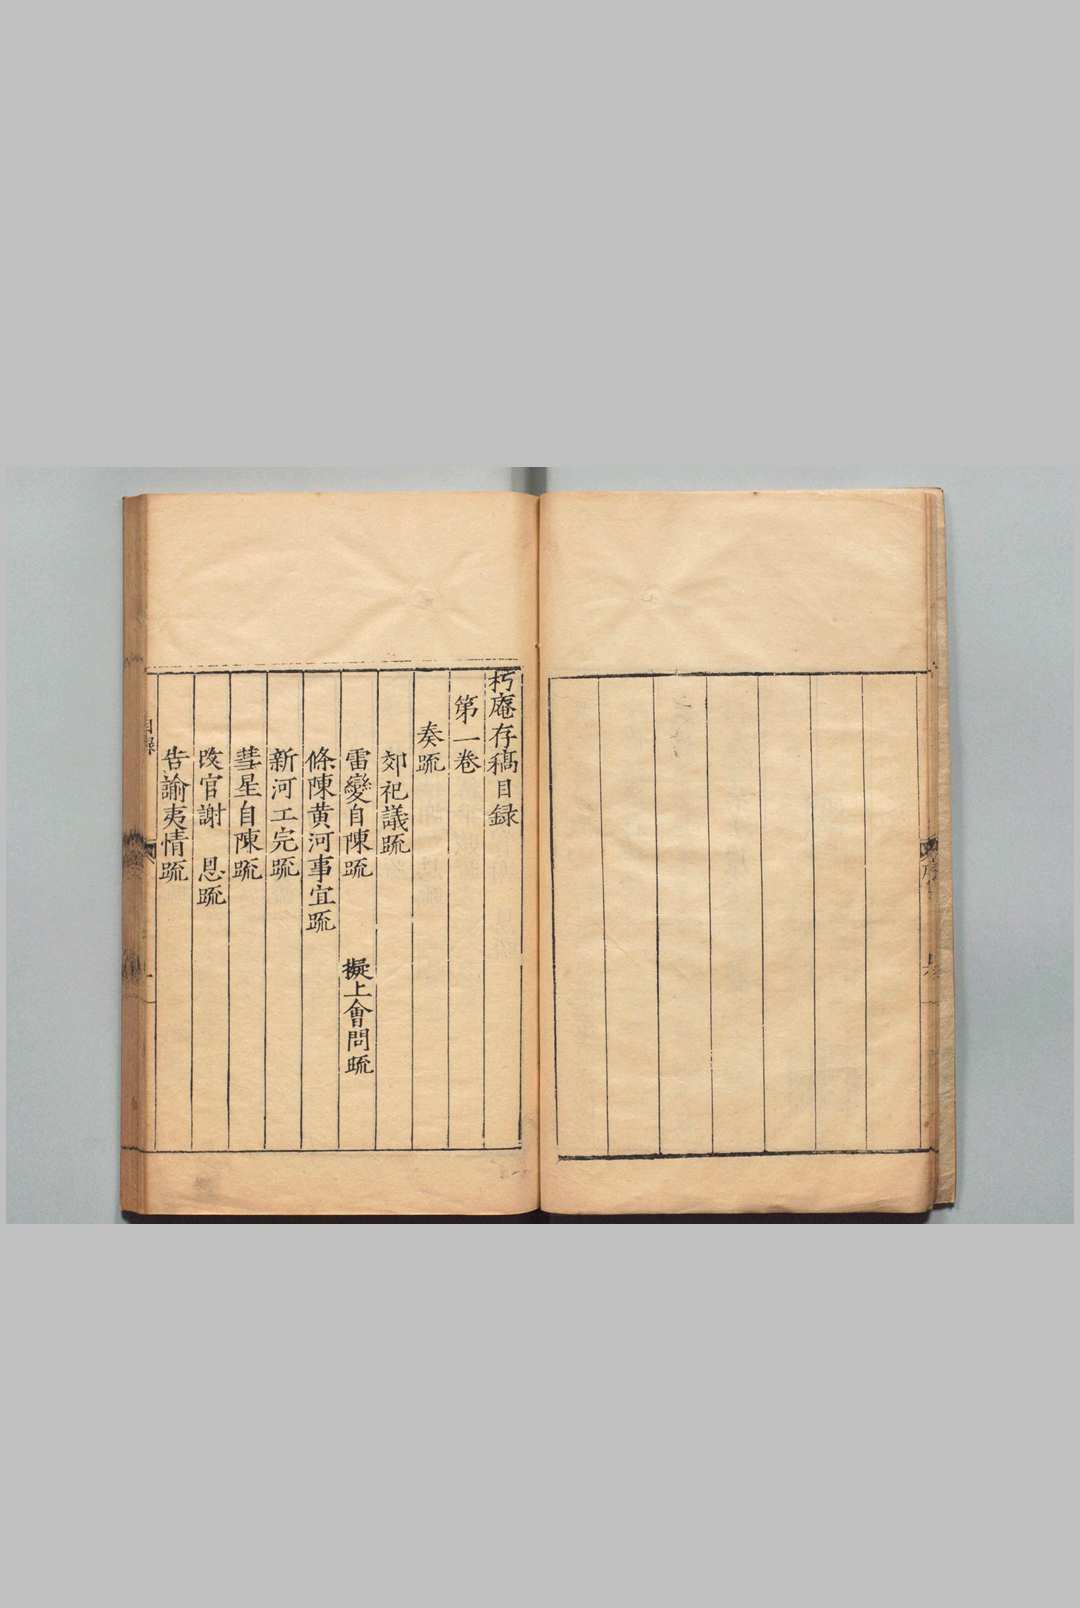 朽庵存稿目録
第一卷
奏疏
郊祀議疏
雷變自陳疏　擬上會問疏
條陳黄河事宜疏
新河工完疏
彗星自陳疏
改官謝　恩疏
告諭夷情疏
目録